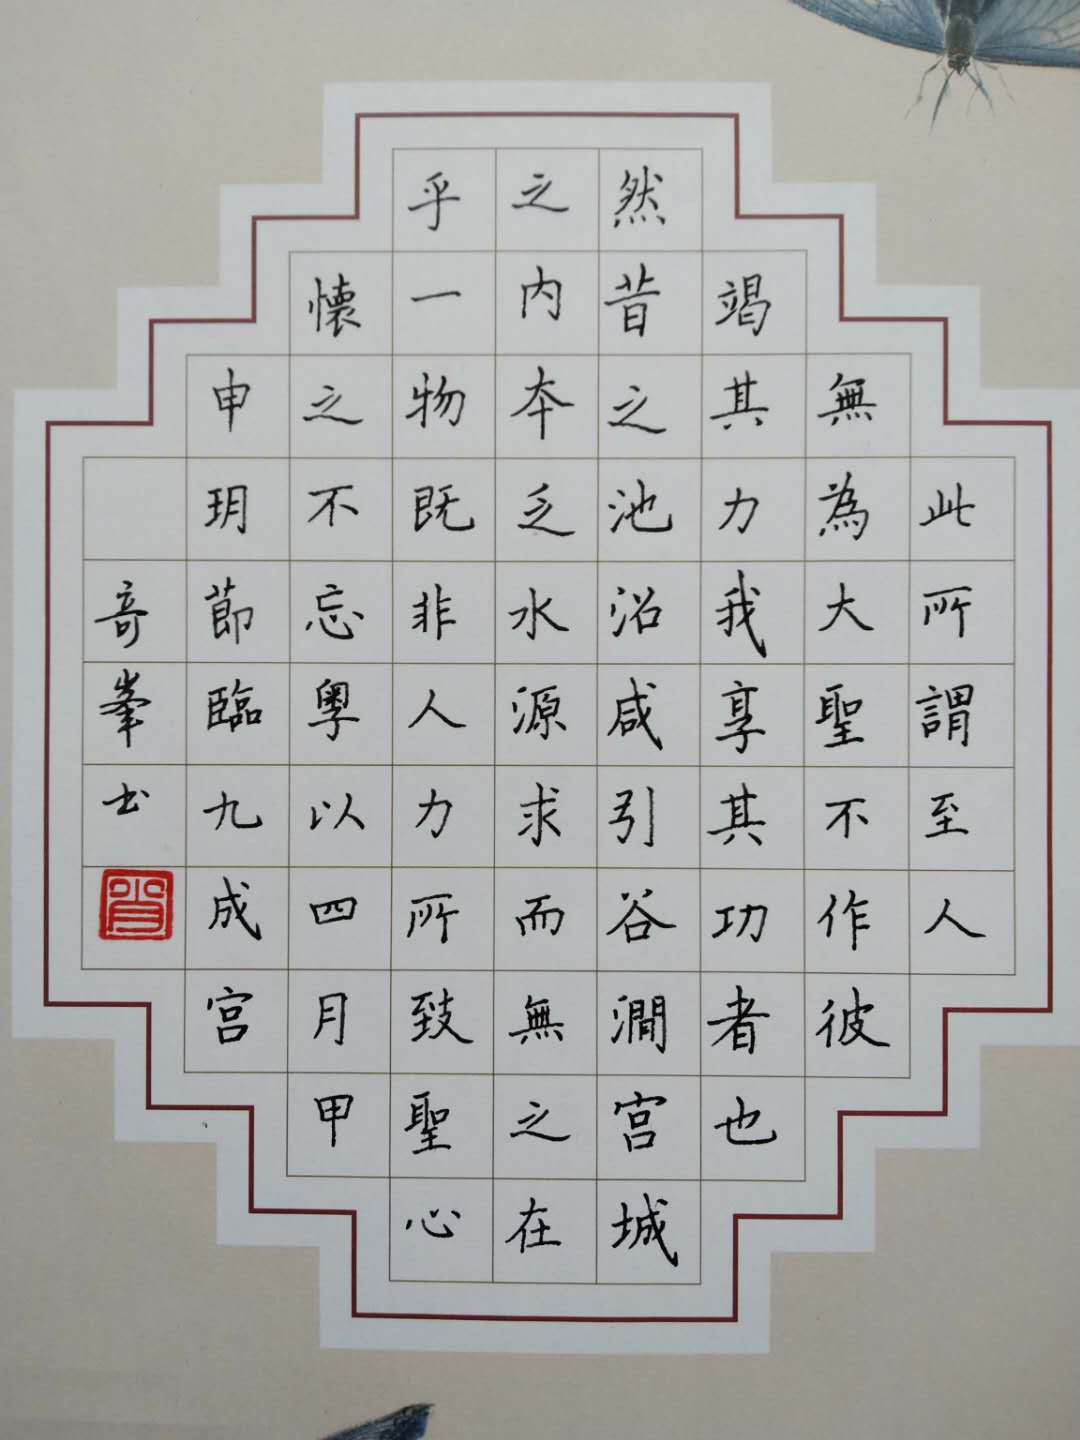 此所謂至人
無為大聖不作彼
竭其力我享其功者也
然昔之池沼咸引谷澗宮城
之内本乏水源求而無之在
乎一物既非人力所致聖心
懷之不忘粵以四月甲
申玥節臨九成宮
竒峯书